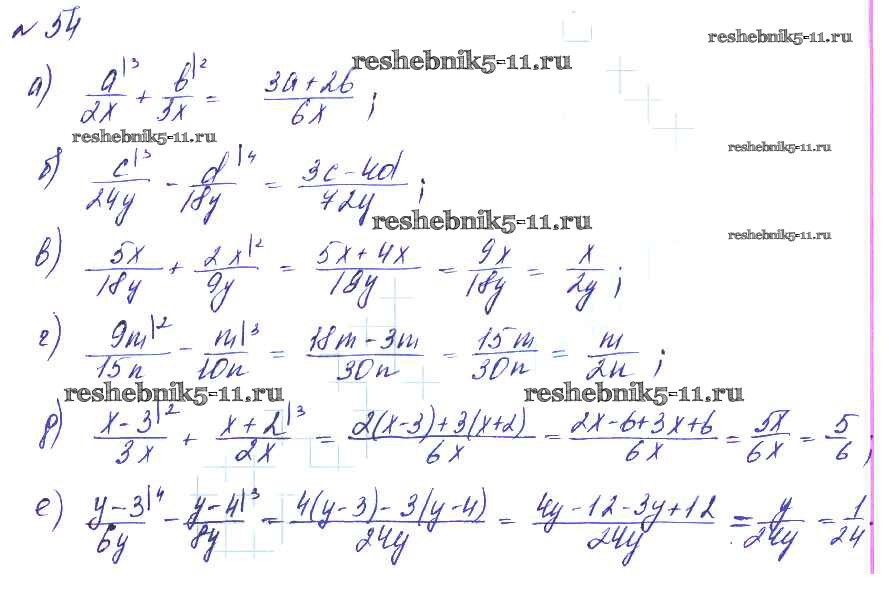 № 54
reshebnik5-11.ru
reshebnik5-11.ru
а) a|³/2x + b|²/3x = 3a+2b/6x ;
reshebnik5-11.ru
reshebnik5-11.ru
б) c|³/24y - d|⁴/18y = 3c-4d/72y ;
reshebnik5-11.ru
reshebnik5-11.ru
в) 5x/18y + 2x|²/9y = 5x+4x/18y = 9x/18y = x/2y ;
г) 9m|²/15n - m|³/10n = 18m-3m/30n = 15m/30n = m/2n ;
reshebnik5-11.ru
reshebnik5-11.ru
д) x-3|²/3x + x+2|³/2x = 2(x-3)+3(x+2)/6x = 2x-6+3x+6/6x = 5x/6x = 5/6 ;
е) y-3|⁴/6y - y-4|³/8y = 4(y-3)-3(y-4)/24y = 4y-12-3y+12/24y = y/24y = 1/24 .